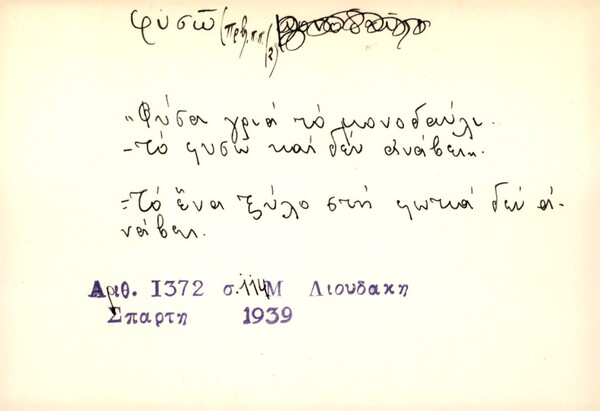 φυσῶ (πρβ. κ.π. /2)
"Φύσα γριά τό μονοδαύλι.
-τό φυσῶ καί δέν ἀνάβει".
=Τό ἕνα ξύλο στή φωτιά δέν ἀ-
νάβει.
Αριθ. 1372 σ. 114 Μ Λιουδακη
Σπαρτη 1939